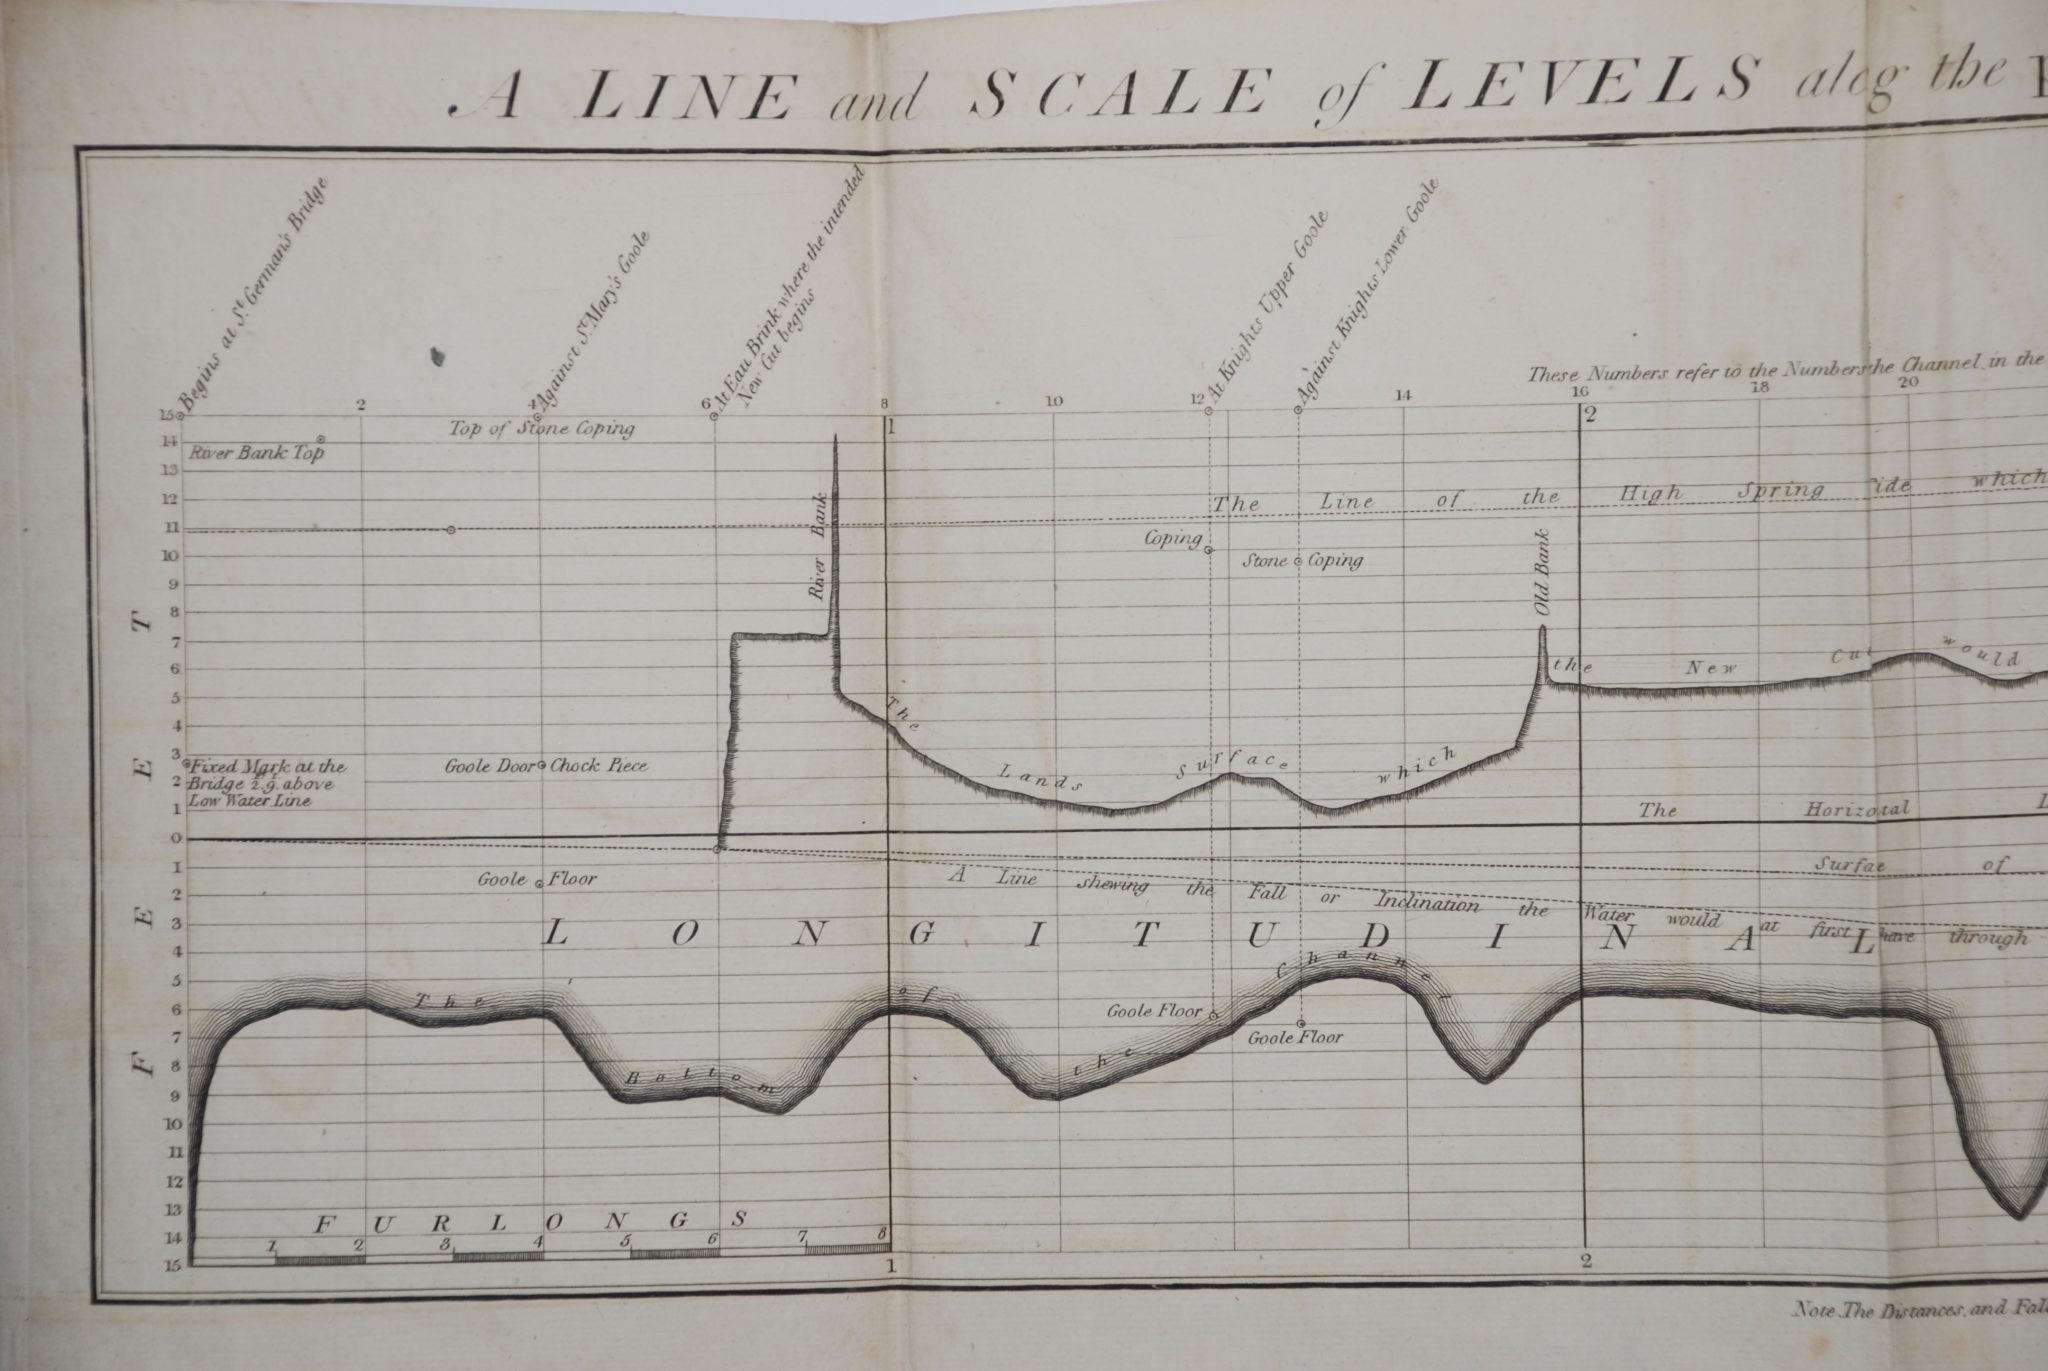 A LINE and SCALE of LEVELS along the
Begins at St. German's Bridge
Against St. Mary's Goole
At Eau Brink where the intended
New Cut begins
At Knights Upper Goole
Against Knights Lower Goole
These Numbers refer to the Numbers the Channel in the
2 4 6 8 10 12 14 16 18 20
1 2
15
14
13
12
11
10
9
8
7
6
5
4
3
2
1
0
1
2
3
4
5
6
7
8
9
10
11
12
13
14
15
FEET
Top of Stone Coping
River Bank Top
River Bank
The Line of the High Spring ide which
Coping
Stone Coping
Old Bank
The Lands Surface which the New Cut would
Fixed Mark at the
Bridge 2.9. above
Low Water Line
Goole Door Chock Piece
The Horizotal
Surfae of
Goole Floor
A Line shewing the Fall or Inclination the Water would at first have through
LONGITUDINAL
The Bottom of the Channel
Goole Floor
Goole Floor
FURLONGS
1 2 3 4 5 6 7 8
1 2
Note. The Distances, and Fall